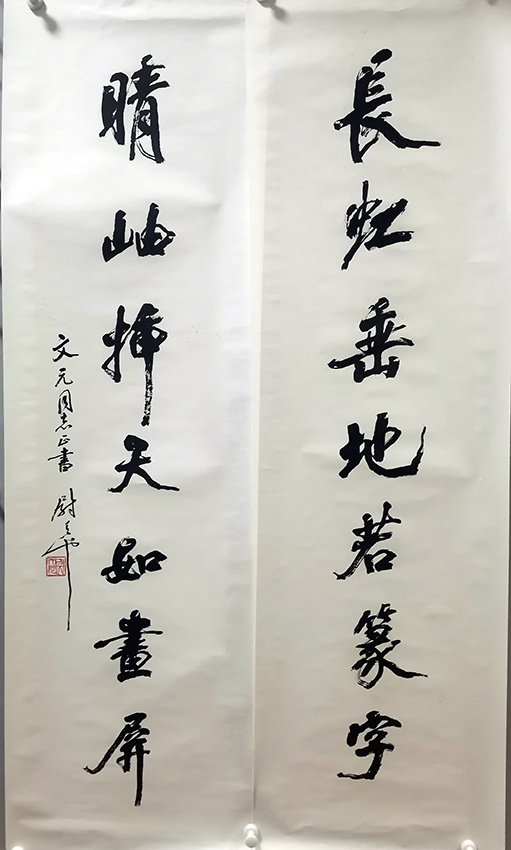 長虹垂地若篆字
晴岫插天如畫屏
文元同志正書 尉天池